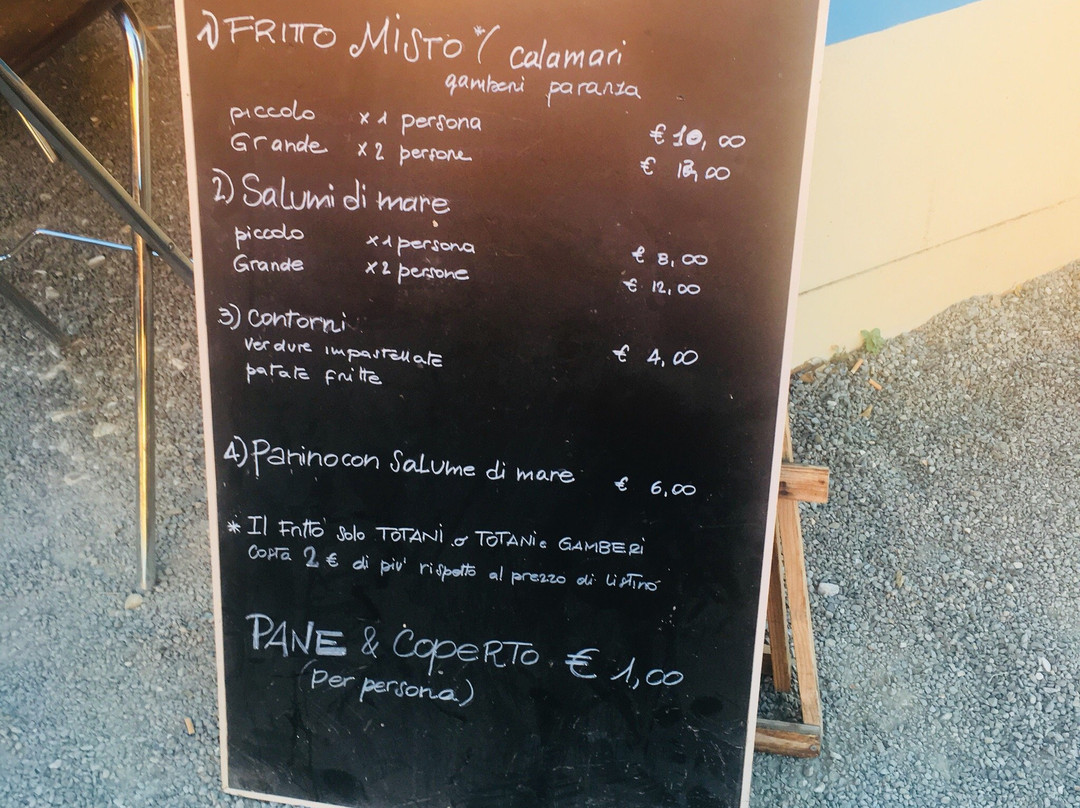 1) FRITTO MISTO * / calamari
gamberi paranza
piccolo x 1 persona € 10,00
Grande x 2 persone €
2) Salumi di mare
piccolo x 1 persona € 8,00
Grande x 2 persone € 12,00
3) Contorni
verdure impastellate € 4,00
patate fritte
4) Panino con Salume di mare € 6,00
* Il Fritto solo TOTANI o TOTANI e GAMBERI
costa 2 € di piu' rispetto al prezzo di listino
PANE & COPERTO € 1,00
(per persona)